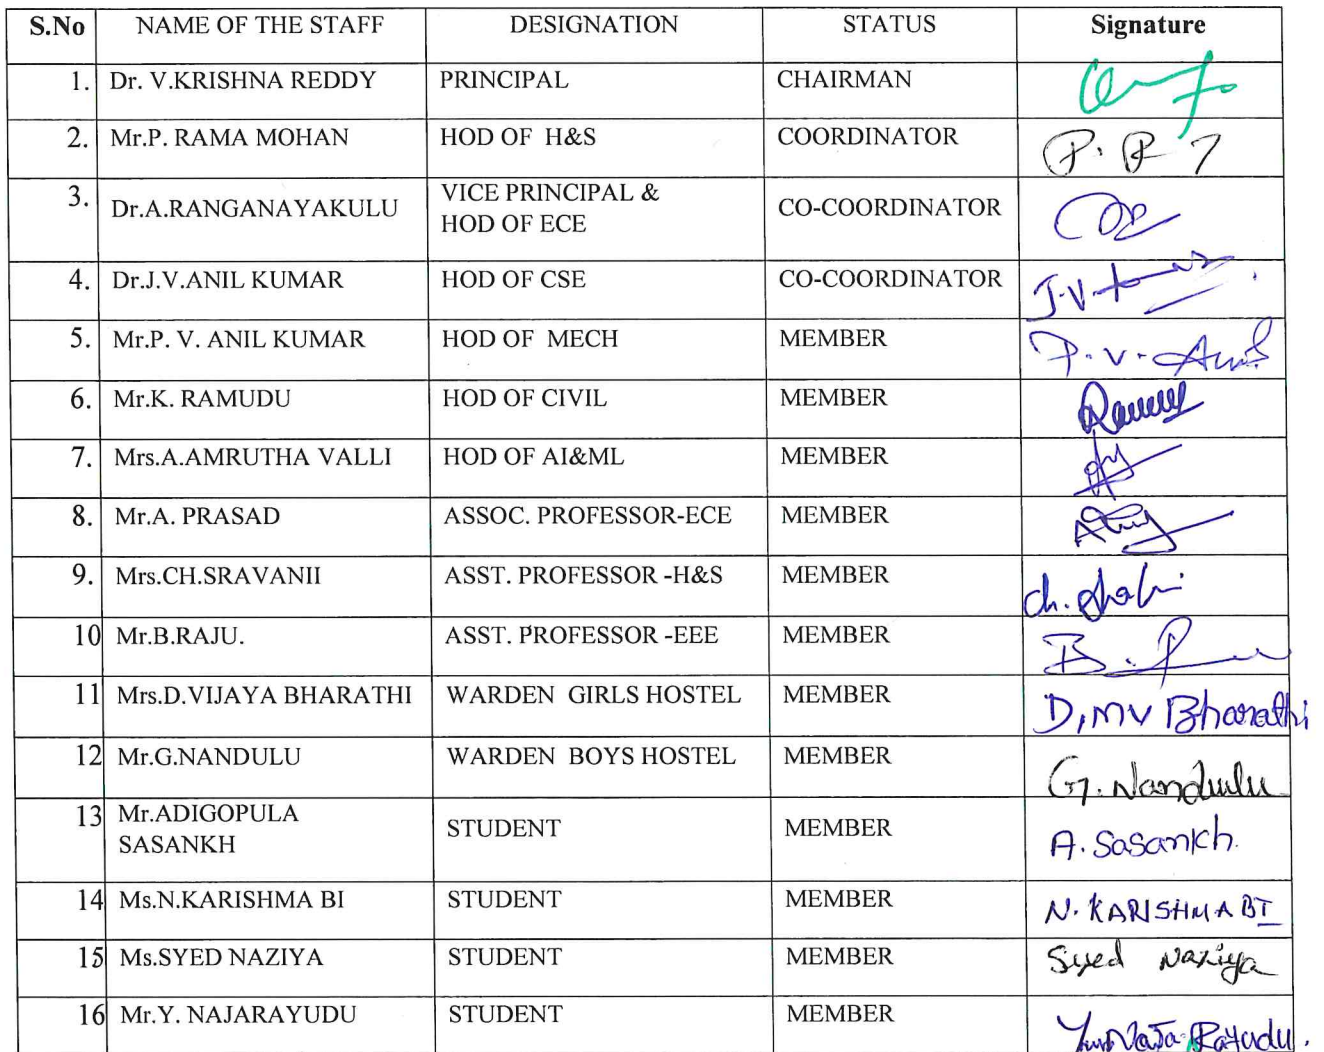 S.No NAME OF THE STAFF DESIGNATION STATUS Signature
1. Dr. V.KRISHNA REDDY PRINCIPAL CHAIRMAN
2. Mr.P. RAMA MOHAN HOD OF H&S COORDINATOR P. R
3. Dr.A.RANGANAYAKULU VICE PRINCIPAL &
HOD OF ECE CO-COORDINATOR
4. Dr.J.V.ANIL KUMAR HOD OF CSE CO-COORDINATOR J.V.
5. Mr.P. V. ANIL KUMAR HOD OF MECH MEMBER P.V.
6. Mr.K. RAMUDU HOD OF CIVIL MEMBER
7. Mrs.A.AMRUTHA VALLI HOD OF AI&ML MEMBER
8. Mr.A. PRASAD ASSOC. PROFESSOR-ECE MEMBER
9. Mrs.CH.SRAVANII ASST. PROFESSOR -H&S MEMBER ch.
10 Mr.B.RAJU. ASST. PROFESSOR -EEE MEMBER B.
11 Mrs.D.VIJAYA BHARATHI WARDEN GIRLS HOSTEL MEMBER D,MV Bharathi
12 Mr.G.NANDULU WARDEN BOYS HOSTEL MEMBER G. Nandulu
13 Mr.ADIGOPULA
SASANKH STUDENT MEMBER A. Sasankh.
14 Ms.N.KARISHMA BI STUDENT MEMBER N. KARISHMA BI
15 Ms.SYED NAZIYA STUDENT MEMBER Syed Naziya
16 Mr.Y. NAJARAYUDU STUDENT MEMBER